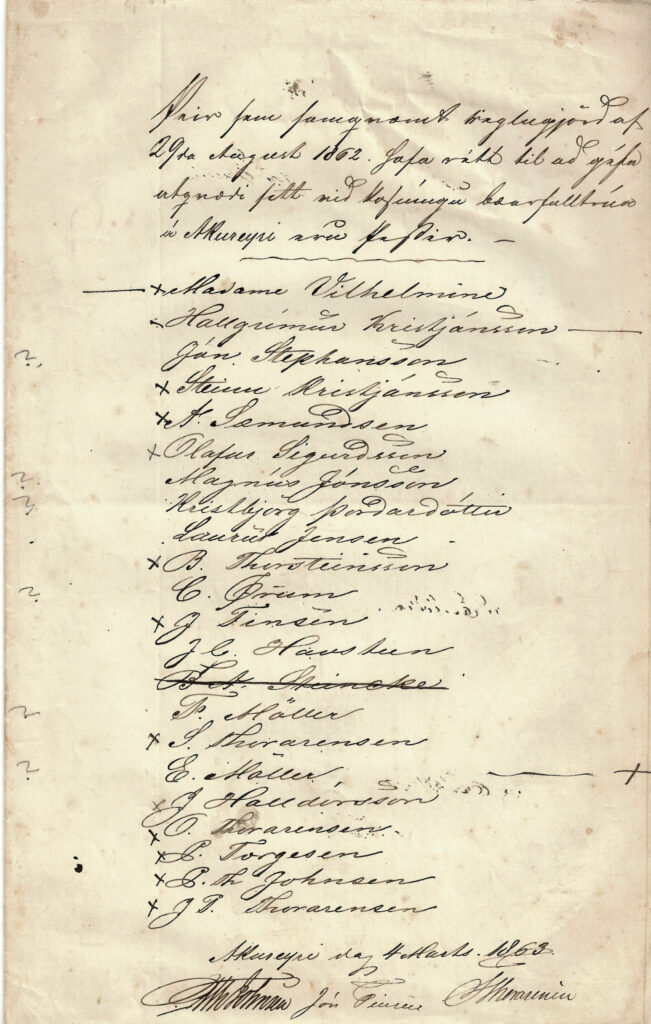 Þeir sem samqvæmt reglugjörd af
29da August 1862. hafa rétt til ad géfa
atqvædi sitt vid kosníngu bæarfulltrúa
á Akureyri eru þessir. —
x Madame Vilhelmine
Hallgrímur Kristjánsson
?. Jón Stephansson
x Steinn Kristjánsson
x A. Sæmundsen
x Olafur Sigurdsson
?. Magnús Jónsson
? Kristbjörg Þordardóttir
Laurus Jensen
x B. Thorsteinsson
?. C. Ørum
x J Finsen
J. C. Havsteen
B. A. Steincke
? P. Möller
x S. Thorarensen
? E. Möller x
x J Halldórsson
x O. Thorarensen
x L. Torgesen
x P. Th Johnsen
x J P. Thorarensen
Akureyri dag 4 Marts. 1863.
PThJohnsen Jón Finsen SThorarensen